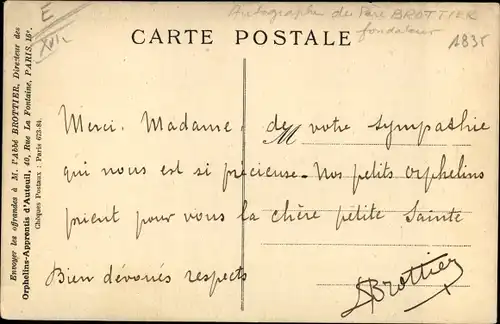 Autographe du Père BROTTIER
fondateur
E
XVIe
1835
CARTE POSTALE
Envoyer les offrandes à M. l'Abbé BROTTIER, Directeur des
Orphelins-Apprentis d'Auteuil, 40, Rue La Fontaine, PARIS, 16e.
Chèques Postaux : Paris 623-84.
M
Merci, Madame, de votre sympathie
qui nous est si précieuse - Nos petits orphelins
prient pour vous la chère petite Sainte
Bien dévoués respects
Brottier